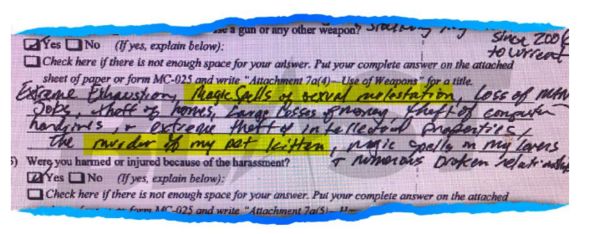 use a gun or any other weapon?
Since 200
to current
Yes No (If yes, explain below):
Check here if there is not enough space for your answer. Put your complete answer on the attached
sheet of paper or form MC-025 and write "Attachment 7a(4)—Use of Weapons" for a title.
Extreme Exhaustion, Magic Spells of sexual molestation, Loss of
Jobs, theft of homes, Large losses of money, theft of computer
hardrives, + extreme theft of intellectual properties,
the murder of my pet kitten, magic spells on my lovers
+ numerous broken relationships
5) Were you harmed or injured because of the harassment?
Yes No (If yes, explain below):
Check here if there is not enough space for your answer. Put your complete answer on the attached
form MC-025 and write "Attachment 7a(5)—